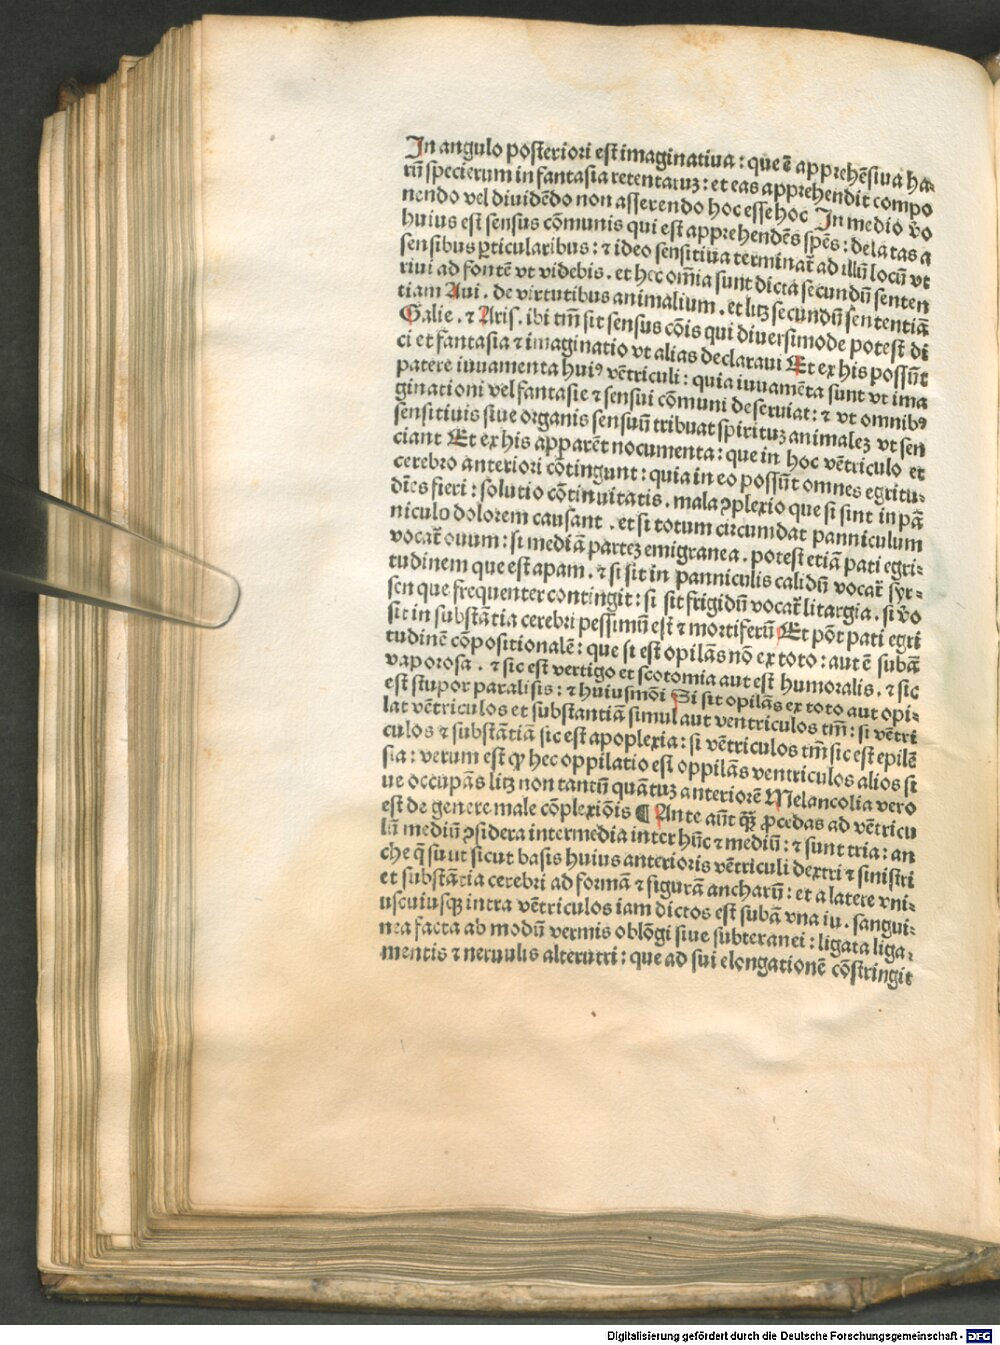 In angulo posteriori est imaginatiua : que ē apprehēsiua ha⸗
rū specierum in fantasia retentaruꝫ : et eas apprehendit compo
nendo vel diuidēdo non asserendo hoc esse hoc In medio v̄o
huius est sensus cōmunis qui est apprehendēs sp̄es : delatas a
sensibus ꝑticularibus : ⁊ ideo sensitiua terminat̄ ad illū locū vt
riui ad fontē vt videbis . et hec om̄ia sunt dicta secundū senten
tiam Aui . de virtutibus animalium . et litꝫ secundū sententiā
Galie . ⁊ Aris . ibi tm̄ sit sensus cōis qui diuersimode potest di
ci et fantasia ⁊ imaginatio vt alias declaraui Et ex his possūt
patere iuuamenta huiꝰ vētriculi : quia iuuamēta sunt vt ima
ginationi vel fantasie ⁊ sensui cōmuni deseruiat : ⁊ vt omnibꝰ
sensitiuis siue organis sensuū tribuat spirituꝫ animaleꝫ vt sen
ciant Et ex his apparēt nocumenta : que in hoc vētriculo et
cerebro anteriori cōtingunt : quia in eo possūt omnes egritu⸗
dīes fieri : solutio cōtinuitatis . mala ꝯplexio que si sint in pā
niculo dolorem causant . et si totum circumdat panniculum
vocat̄ ouum : si mediā parteꝫ emigranea . potest etiā pati egri⸗
tudinem que est apam . ⁊ si sit in panniculis calidū vocat̄ syr⸗
sen que frequenter contingit : si sit frigidū vocat̄ litargia . si v̄o
sit in substātia cerebri pessimū est ⁊ mortiferū Et pōt pati egri
tudinē cōpositionalē : que si est opilās nō ex toto : aut ē subā
vaporosa . ⁊ sic est vertigo et scotomia aut est humoralis . ⁊ sic
est stupor paralisis : ⁊ huiusmōi Si sit opilās ex toto aut opi⸗
lat vētriculos et substantiā simul aut ventriculos tm̄ : si vētri
culos ⁊ substātiā sic est apoplexia : si vētriculos tm̄ sic est epilē
sia : verum est ꝙ hec oppilatio est oppilās ventriculos alios si
ue occupās litꝫ non tantū quātuꝫ anteriorē Melancolia vero
est de genere male cōplexiōis ¶ Ante aūt qꝫ̄ ꝓcedas ad vētricu
lū mediū ꝯsidera intermedia inter hūc ⁊ mediū : ⁊ sunt tria : an
che q̄ suut sicut basis huius anterioris vētriculi dextri ⁊ sinistri
et substātia cerebri ad formā ⁊ figurā ancharū : et a latere vni⸗
uscuiusqꝫ intra vētriculos iam dictos est subā vna iu . sangui⸗
nea facta ab modū vermis oblōgi siue subteranei : ligata liga⸗
mentis ⁊ neruulis alterutri : que ad sui elongationē cōstringit
Digitalisierung gefördert durch die Deutsche Forschungsgemeinschaft - DFG